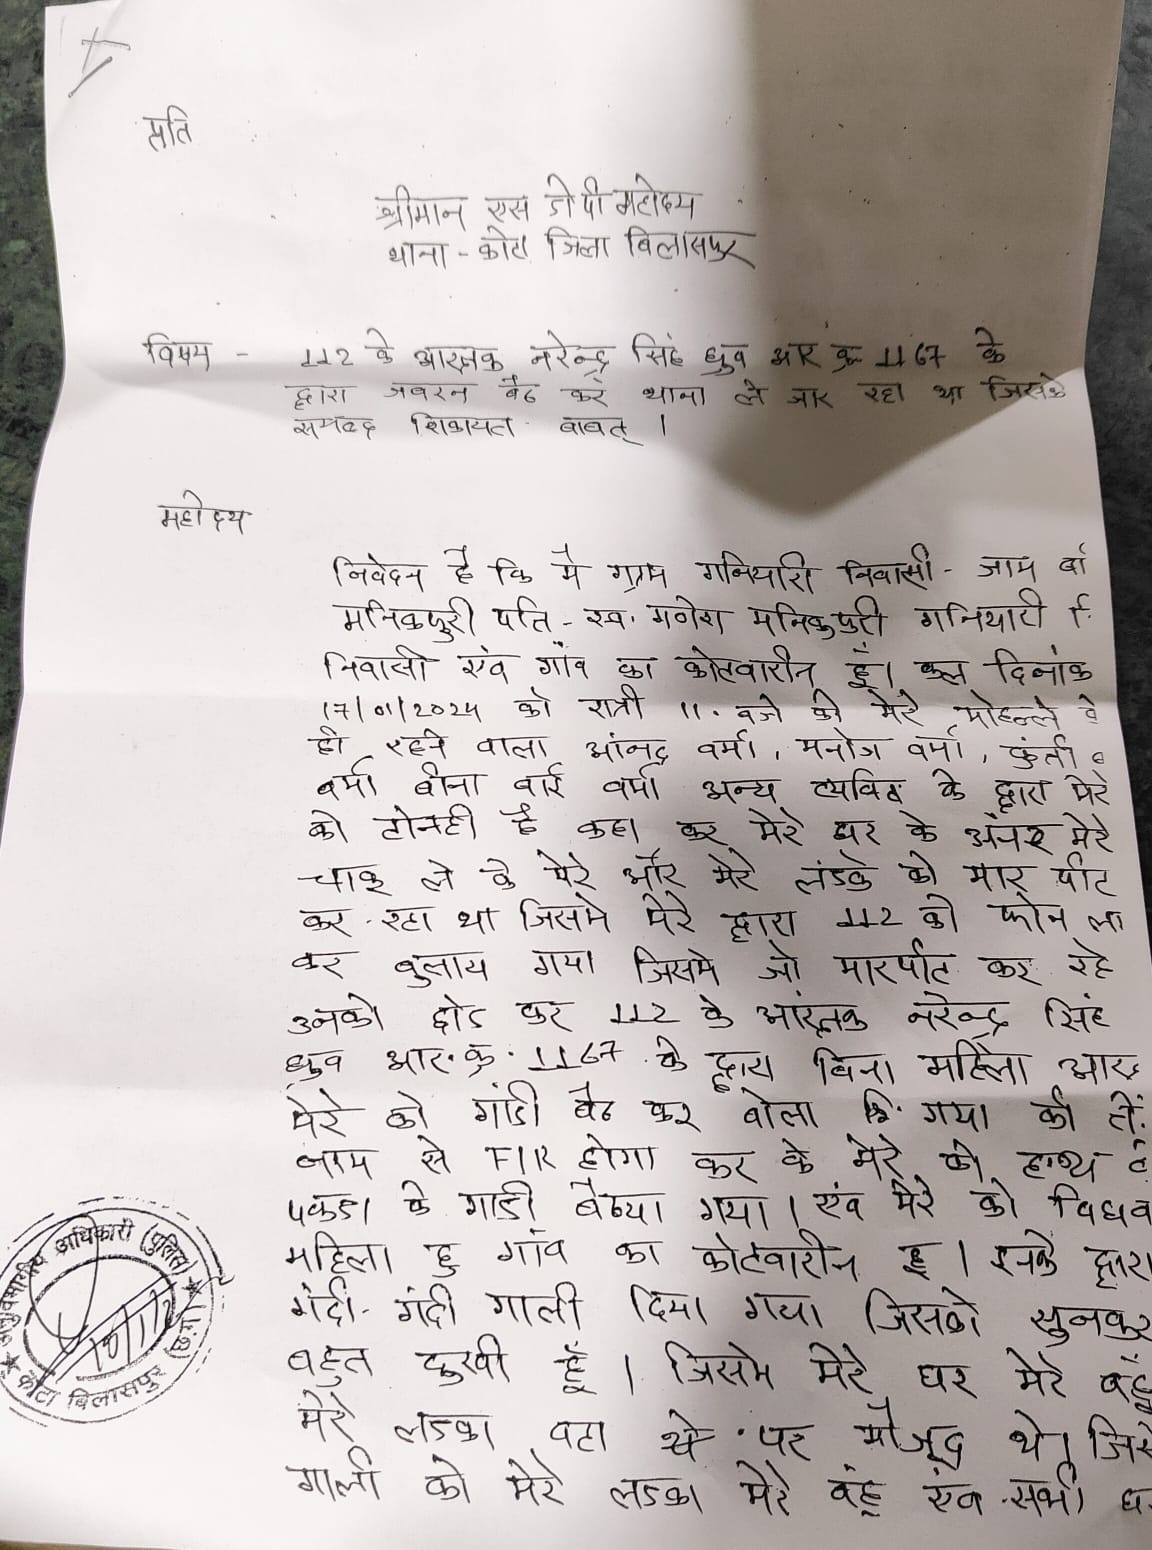 प्रति
श्रीमान एस डी पी महोदय
थाना - कोटा जिला बिलासपुर
विषय - 112 के आरक्षक नरेन्द्र सिंह ध्रुव आर क्र 1167 के
द्वारा जबरन बैठ कर थाना ले जार रहा था जिसके
सम्बद शिकायत बाबत् ।
महोदय
निवेदन है कि मै ग्राम गनियारी निवासी - जाम बा
मनिकपुरी पति - स्व. गणेश मनिकपुरी गनियारी
निवासी एंव गांव का कोटवारीन हूं। कल दिनांक
17/01/2024 को रात्री 11. बजे की मेरे मोहल्ले के
ही रहने वाला आंनद वर्मा, मनोज वर्मा, कुंती
वर्मा बीना बाई वर्मा अन्य व्यक्ति के द्वारा मेरे
को टोनही है कहा कर मेरे घर के अंनदर मेरे
चाकू ले के मेरे और मेरे लंडके को मार पीट
कर रहा था जिसमे मेरे द्वारा 112 को फोन ला
कर बुलाय गया जिसमे जो मारपीट कर रहे
उनको छोड कर 112 के आंरक्षक नरेन्द्र सिंह
ध्रुव आर. क्र. 1167 के द्वारा बिना महिला आर
मेरे को गांडी बैठ कर बोला गया की तें
नाम से FIR होगा कर के मेरे को हाथ
पकडा के गाडी बैठया गया। एंव मेरे को विधव
महिला हु गांव का कोटवारीन हू । इनके द्वारा
गंदी-गंदी गाली दिया गया जिसको सुनकर
बहुत दुखी हूँ । जिसमे मेरे घर मेरे बहू
मेरे लडका वहा पर मौजूद थे। जिसे
गाली को मेरे लडका मेरे बंहू एंव सभी घ
अनुविभागीय अधिकारी (पुलिस)
कोटा बिलासपुर (छ.ग.)